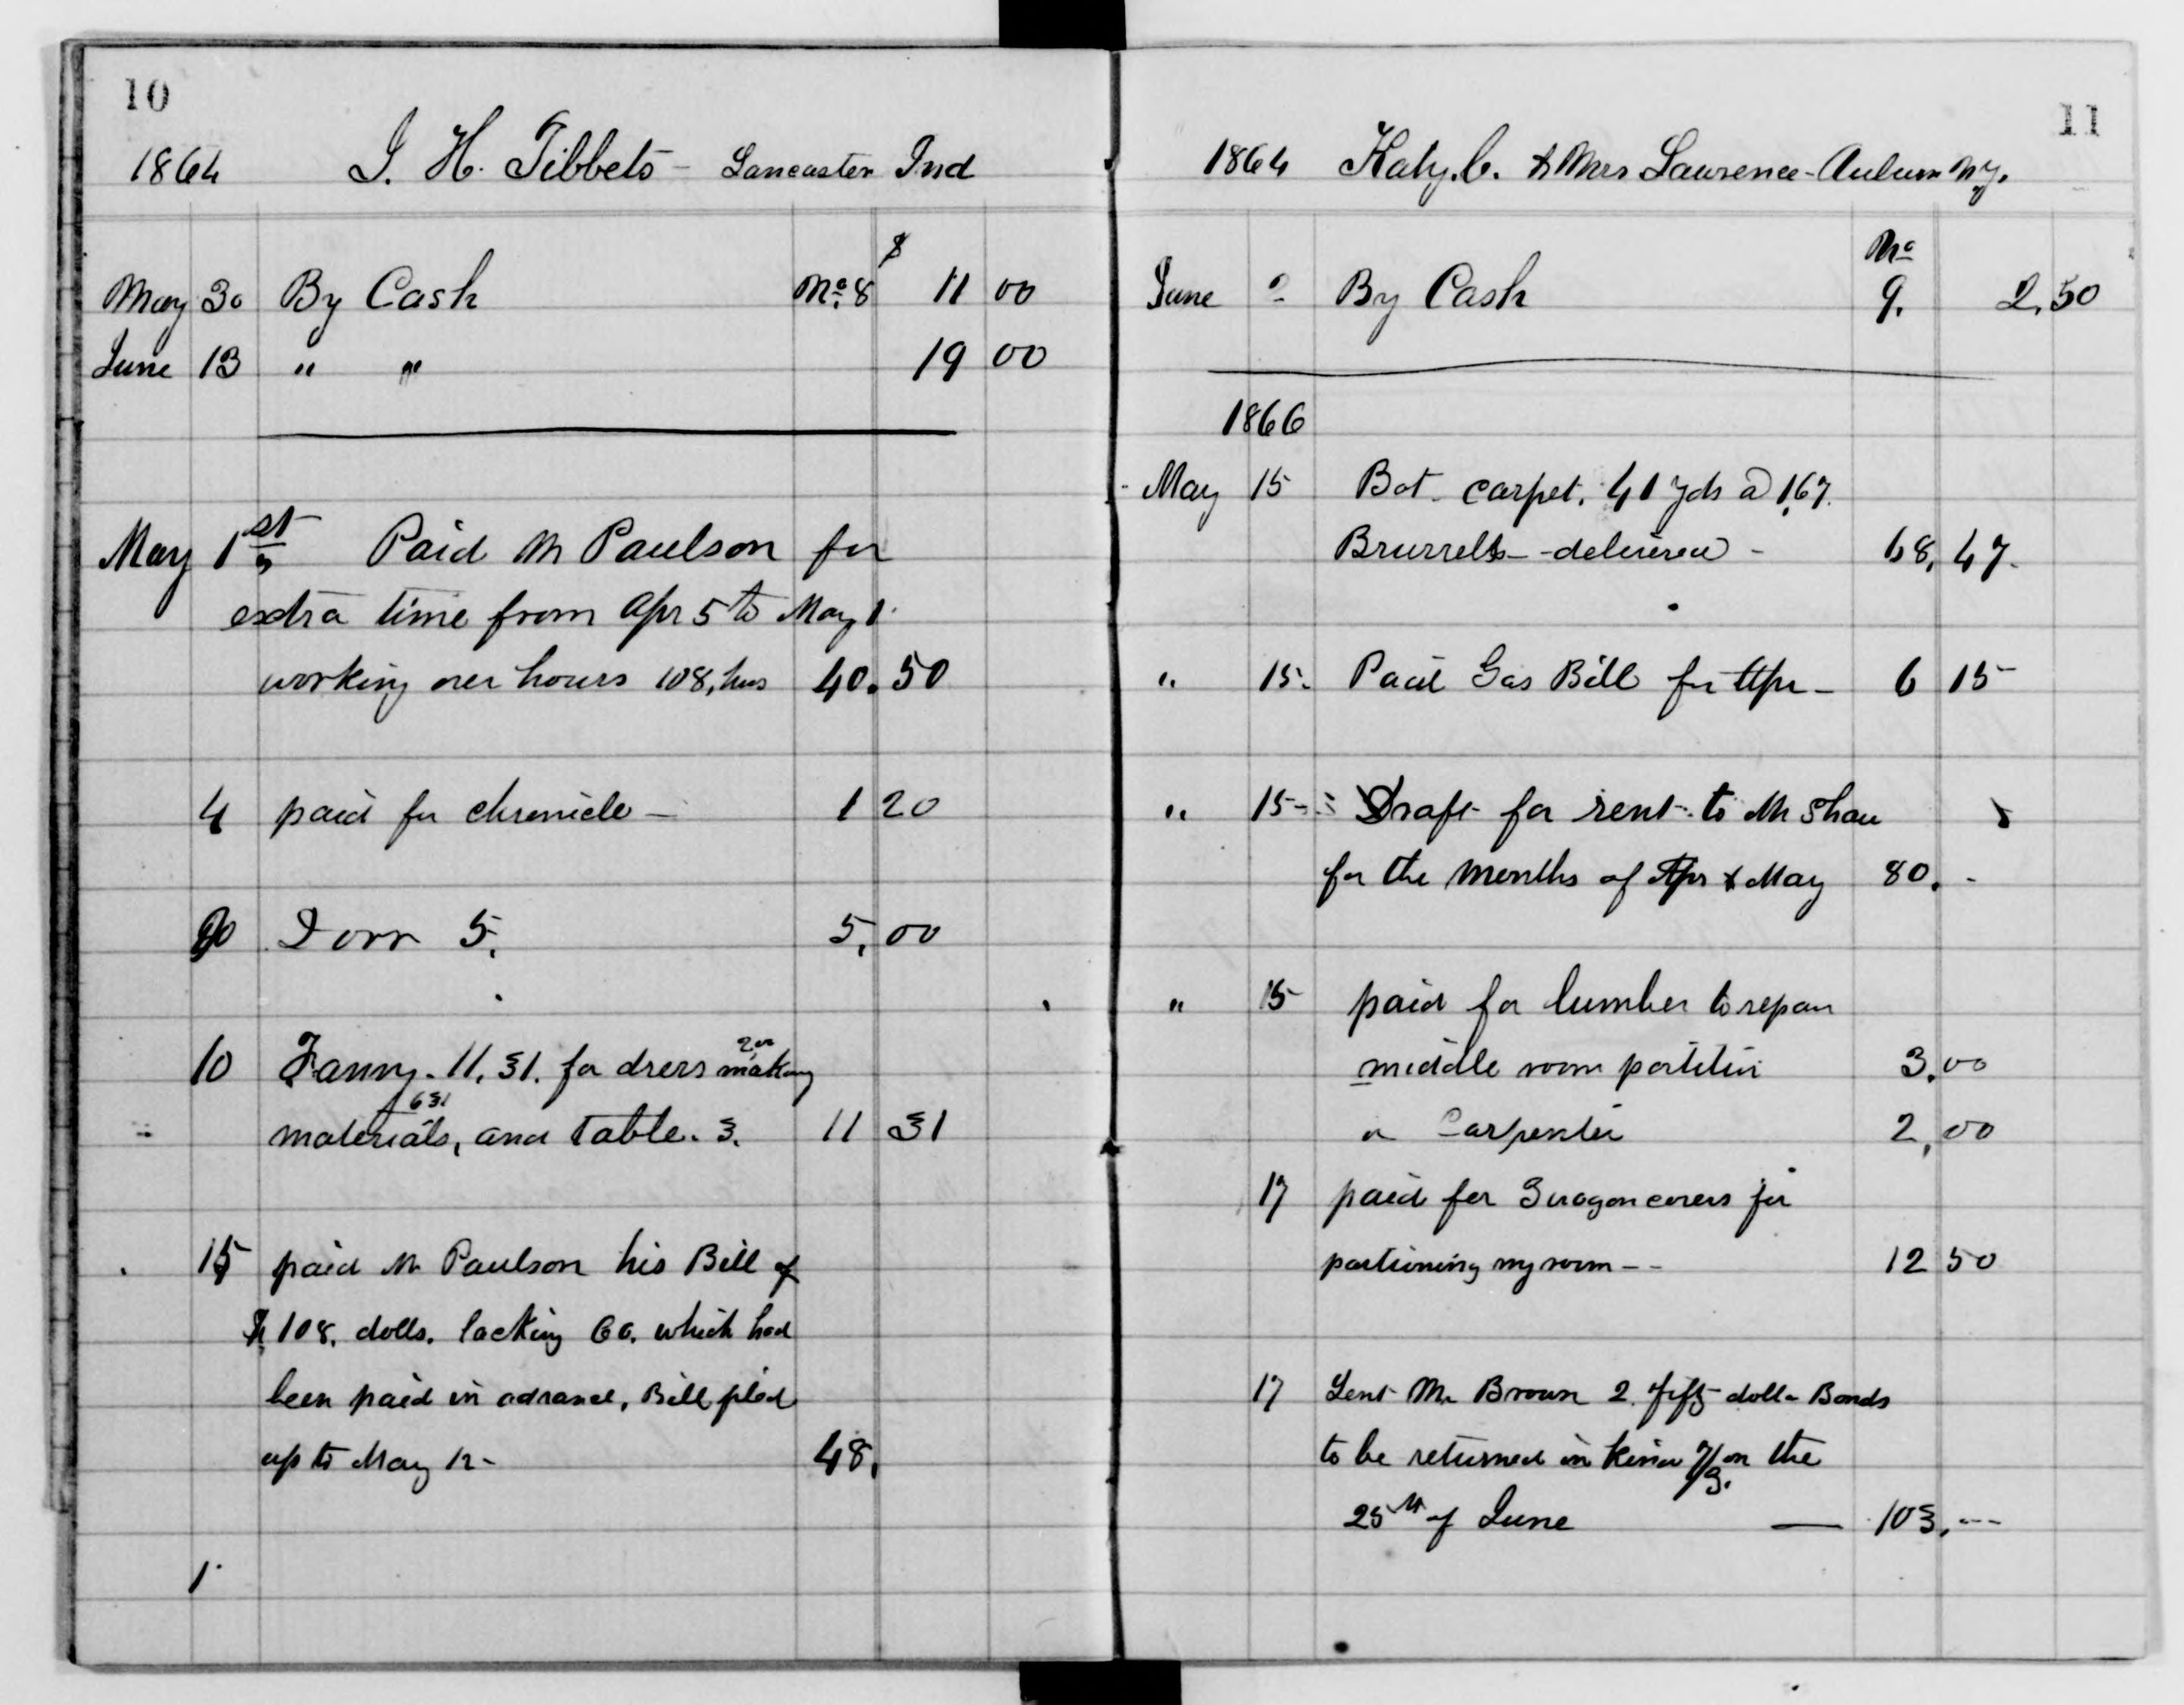 10
1864 J. H. Tibbets - Lancaster Ind
$
May 30 By Cash No. 8 11 00
June 13 " " 19 00
May 1st Paid Mr Paulson for
extra time from Apr 5 to May 1.
working over hours 108, hrs 40. 50
4 paid for chronicle - 1 20
Dorr 5. 5, 00
2.00
10 Fanny - 11, 31. for dress making
6 31
materials, and table. 3. 11 31
15 paid Mr Paulson his Bill of
108. dolls. lacking 60. which had
been paid in advance, Bill
up to May 12 - 48.
1.
11
1864 Katy. C. & Mrs Lawrence - Auburn N.Y.
No
June By Cash 9. 2. 50
1866
May 15 Bot carpet. 41 yds a 1,67.
Brussells - delivered - 68, 47.
" 15. Paid Gas Bill for Apr - 6 15
" 15 - Draft for rent to Mr Shaw
for the months of Apr & May 80. -
" 15 paid for lumber to repair
middle room partition 3. 00
" Carpenter 2, 00
17 paid for 3 wagon covers for
partioning my room - - 12 50
17 Lent Mr Brown 2. fifty dollar Bonds
to be returned in kind on the
25th of June — 103. ---